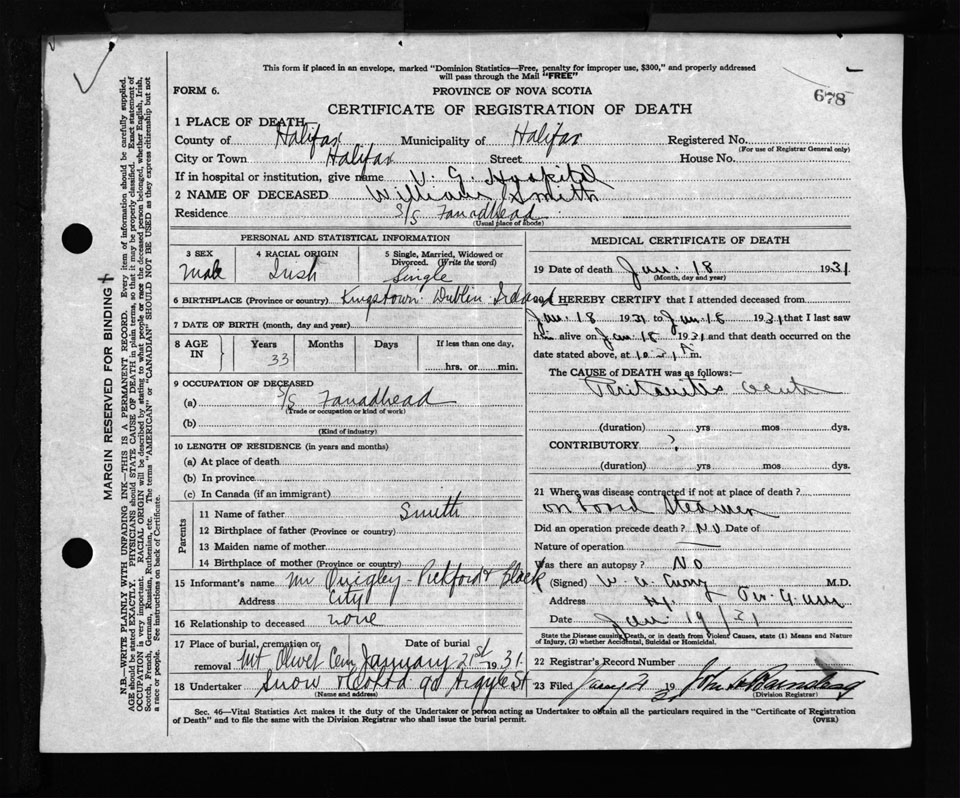 This form if placed in an envelope, marked "Dominion Statistics—Free, penalty for improper use, $300," and properly addressed
will pass through the Mail "FREE"
FORM 6.
PROVINCE OF NOVA SCOTIA
678
CERTIFICATE OF REGISTRATION OF DEATH
1 PLACE OF DEATH
County of Halifax Municipality of Halifax Registered No.
(For use of Registrar General only)
City or Town Halifax Street House No.
If in hospital or institution, give name V. G. Hospital
2 NAME OF DECEASED William Smith
Residence S/S Fanadhead
(Usual place of abode)
PERSONAL AND STATISTICAL INFORMATION
3 SEX 4 RACIAL ORIGIN 5 Single, Married, Widowed or
Divorced. (Write the word)
Male Irish Single
6 BIRTHPLACE (Province or country) Kingstown Dublin Ireland
7 DATE OF BIRTH (month, day and year)
8 AGE IN Years Months Days If less than one day,
33 hrs. or min.
9 OCCUPATION OF DECEASED
(a) S/S Fanadhead
(Trade or occupation or kind of work)
(b)
(Kind of industry)
10 LENGTH OF RESIDENCE (in years and months)
(a) At place of death
(b) In province
(c) In Canada (if an immigrant)
Parents
11 Name of father Smith
12 Birthplace of father (Province or country)
13 Maiden name of mother
14 Birthplace of mother (Province or country)
15 Informant's name Mr Quigley - Pickford & Black
Address City
16 Relationship to deceased none
17 Place of burial, cremation or removal Mt Olivet Cem Date of burial January 21st 1931.
18 Undertaker Snow & Co Ltd 90 Argyle St
(Name and address)
MEDICAL CERTIFICATE OF DEATH
19 Date of death Jan. 18 1931
(Month, day and year)
I HEREBY CERTIFY that I attended deceased from
Jan. 18 1931 to Jan. 18 1931 that I last saw
him alive on Jan 18 1931 and that death occurred on the
date stated above, at m.
The CAUSE OF DEATH was as follows:—
Peritonitis acute
(duration) yrs mos dys.
CONTRIBUTORY ?
(duration) yrs mos dys.
21 Where was disease contracted if not at place of death?
on board Steamer
Did an operation precede death? No Date of
Nature of operation —
Was there an autopsy? No
(Signed) W. A. M.D.
Address
Date Jan 19/31
State the Disease causing Death, or in death from Violent Causes, state (1) Means and Nature
of Injury, (2) whether Accidental, Suicidal or Homicidal.
22 Registrar's Record Number
23 Filed Jany 21 1931 John
(Division Registrar)
Sec. 46—Vital Statistics Act makes it the duty of the Undertaker or person acting as Undertaker to obtain all the particulars required in the "Certificate of Registration
of Death" and to file the same with the Division Registrar who shall issue the burial permit.
(OVER)
MARGIN RESERVED FOR BINDING
N.B.—WRITE PLAINLY WITH UNFADING INK—THIS IS A PERMANENT RECORD. Every item of information should be carefully supplied.
AGE should be stated EXACTLY. PHYSICIANS should STATE CAUSE OF DEATH in plain terms, so that it may be properly classified. Exact statement of
OCCUPATION is very important. RACIAL ORIGIN will be described by stating to what people or race the deceased person belonged, whether English, Irish,
Scotch, French, German, Russian, Ruthenian, etc. The terms "AMERICAN" or "CANADIAN" SHOULD NOT BE USED as they express citizenship but not
a race or people. See instructions on back of Certificate.